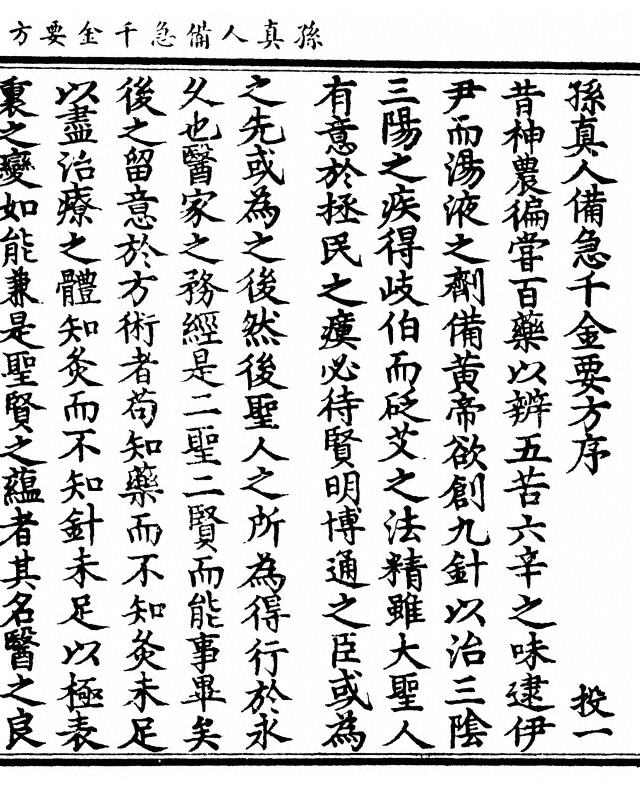 孫真人備急千金要方
孫真人備急千金要方序 投一
昔神農徧嘗百藥以辨五苦六辛之味逮伊
尹而湯液之劑備黃帝欲創九針以治三陰
三陽之疾得岐伯而砭艾之法精雖大聖人
有意於拯民之瘼必待賢明博通之臣或為
之先或為之後然後聖人之所為得行於永
乆也醫家之務經是二聖二賢而能事畢矣
後之留意於方術者茍知藥而不知灸未足
以盡治療之體知灸而不知針未足以極表
裏之變如能兼是聖賢之蘊者其名醫之良